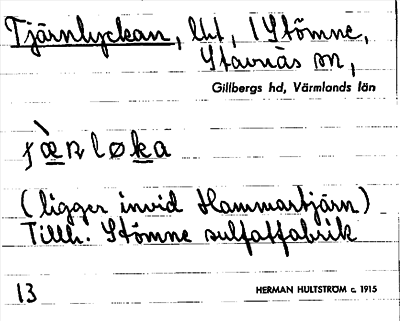 Tjärnlyckan, lht, 1 Stömne,
Stavnäs sn,
Gillbergs hd, Värmlands län
(ligger invid Hammartjärn)
Tillh. Stömne sulfatfabrik
13 HERMAN HULTSTRÖM c. 1915